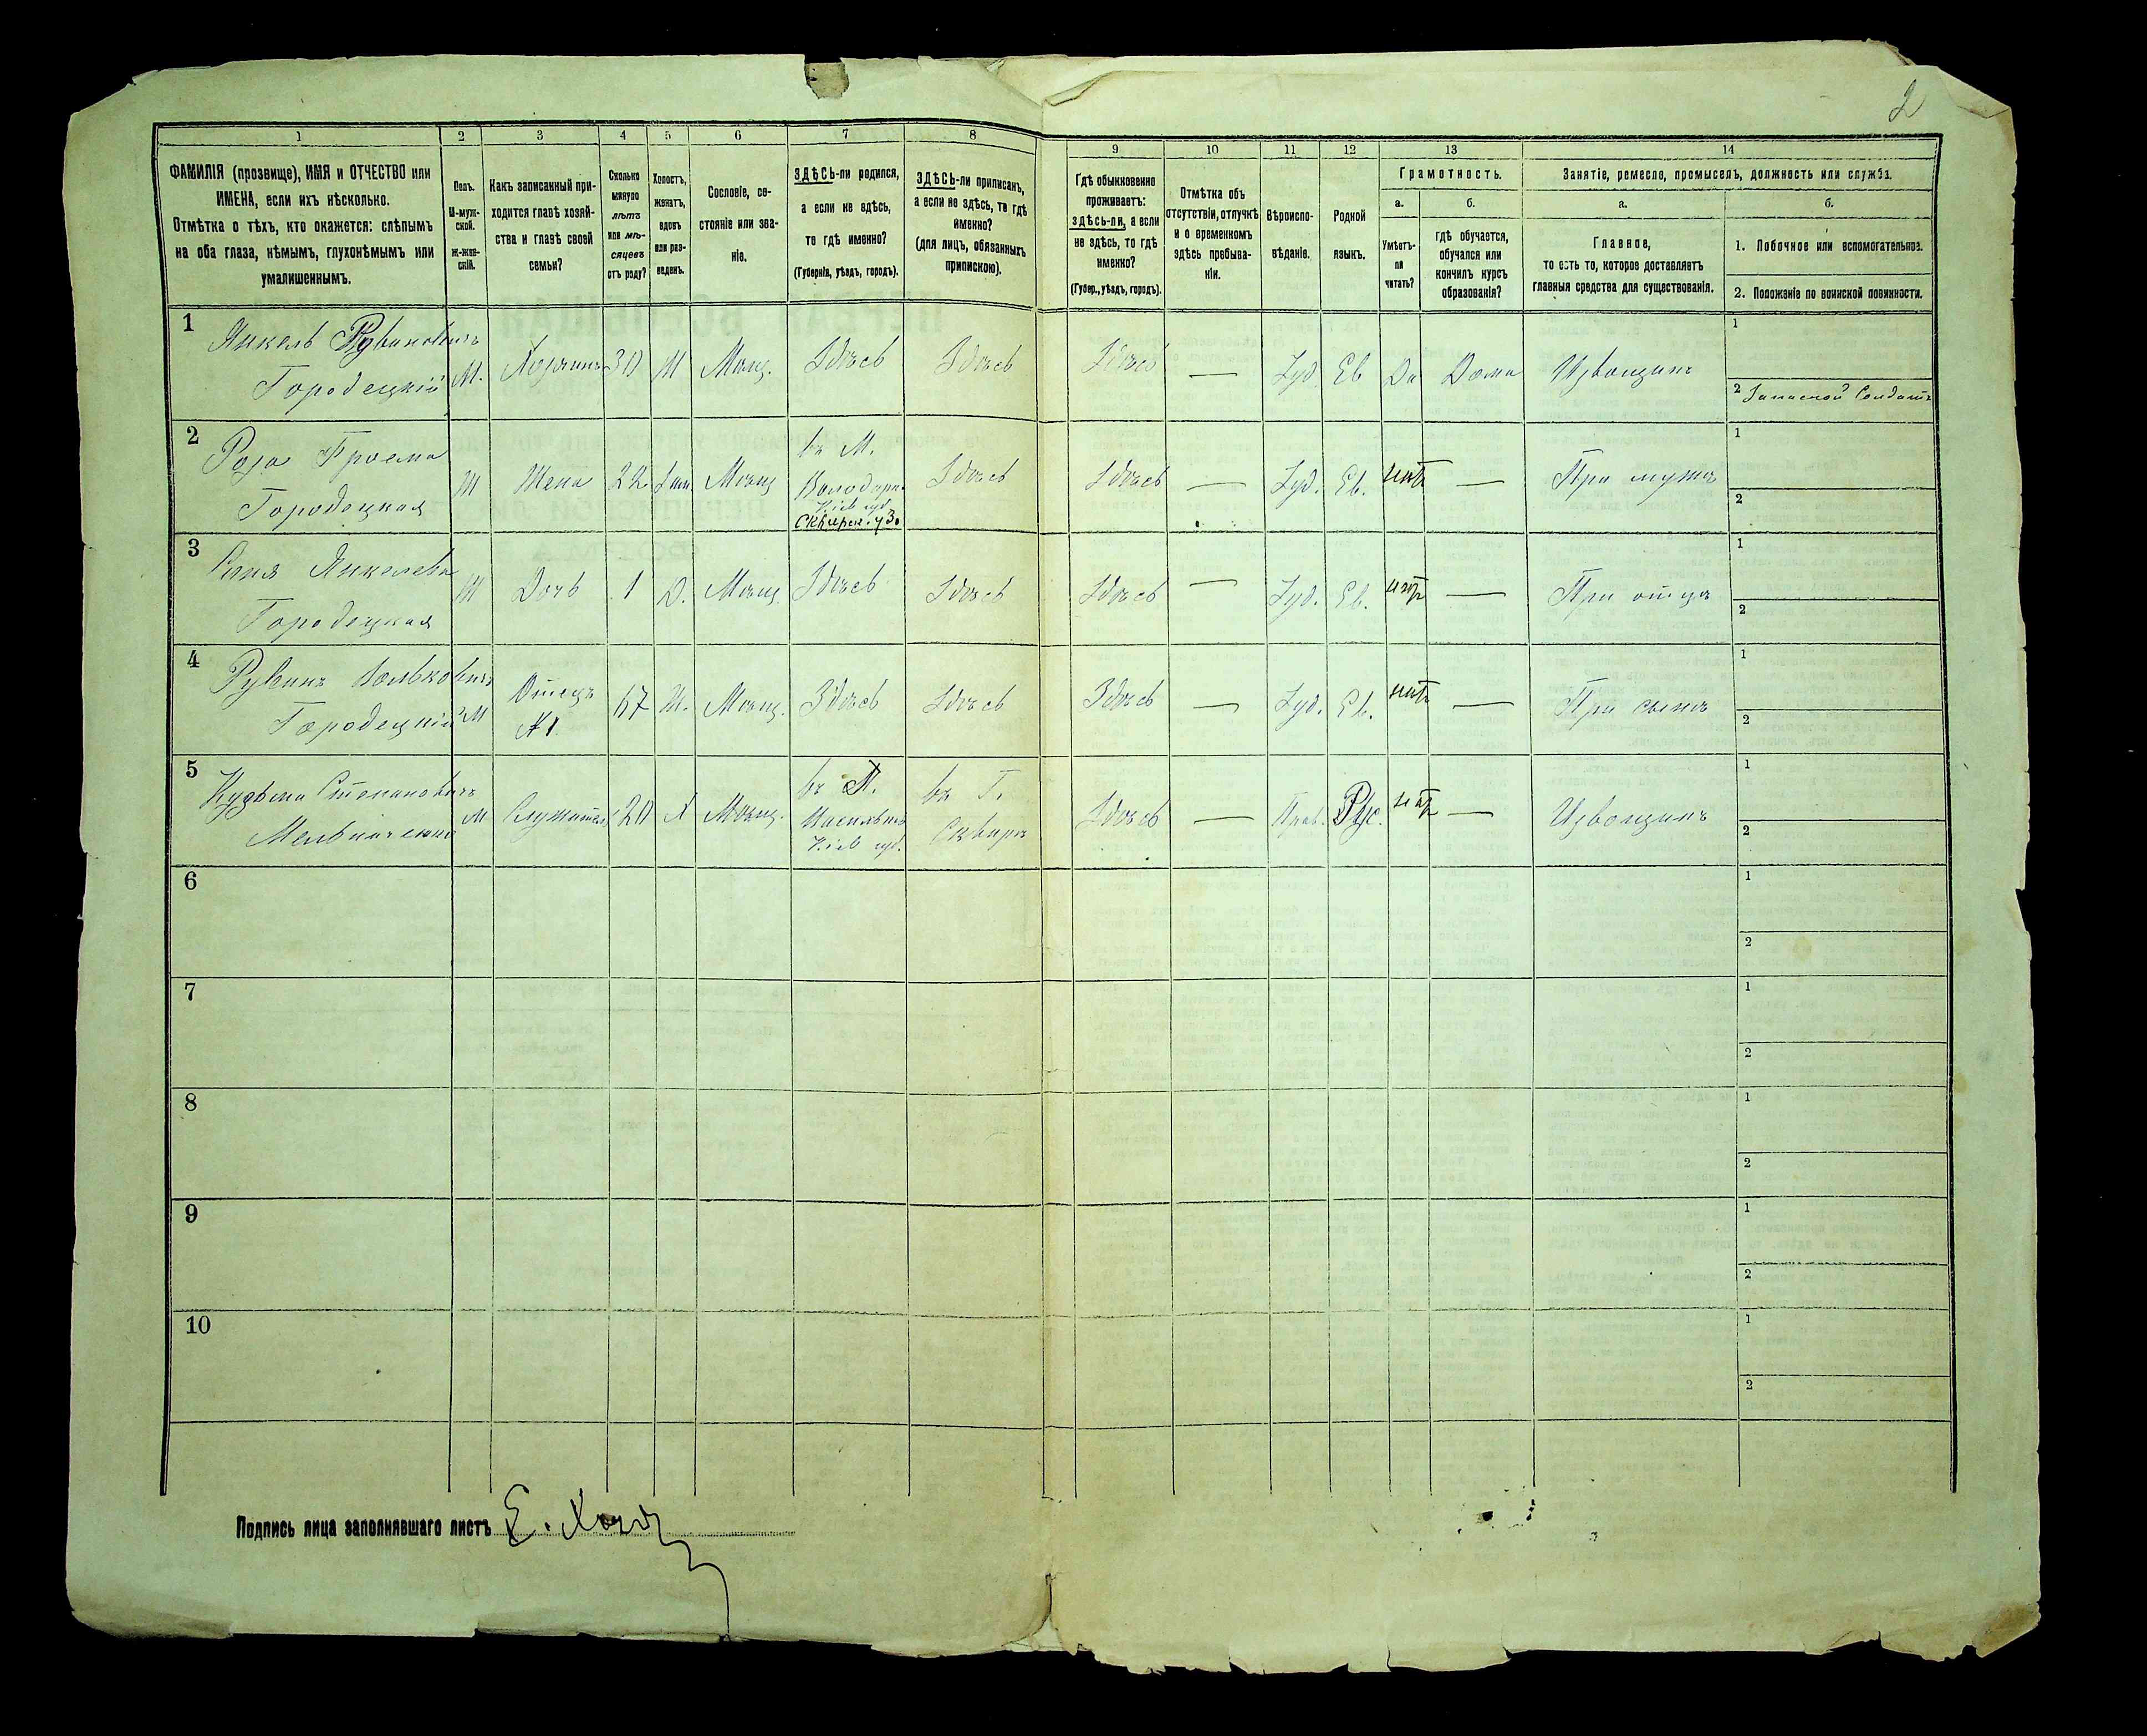 2
1
2
3
4
5
6
7
8
9
10
11
12
13
14
ФАМИЛІЯ (прозвище), ИМЯ и ОТЧЕСТВО или
ИМЕНА, если ихъ нѣсколько.
Отмѣтка о тѣхъ, кто окажется: слѣпымъ
на оба глаза, нѣмымъ, глухонѣмымъ или
умалишеннымъ.
Полъ.
М-муж-
ской.
Ж-жен-
скій.
Какъ записанный при-
ходится главѣ хозяй-
ства и главѣ своей
семьи?
Сколько
минуло
лѣтъ
или мѣ-
сяцевъ
отъ роду?
Холостъ,
женатъ,
вдовъ
или раз-
веденъ.
Сословіе, со-
стояніе или зва-
ніе.
ЗДѢСЬ-ли родился,
а если не здѣсь,
то гдѣ именно?
(Губернія, уѣздъ, городъ).
ЗДѢСЬ-ли приписанъ,
а если не здѣсь, то гдѣ
именно?
(для лицъ, обязанныхъ
припискою).
Гдѣ обыкновенно
проживаетъ:
здѣсь-ли, а если
не здѣсь, то гдѣ
именно?
(Губер., уѣздъ, городъ).
Отмѣтка объ
отсутствіи, отлучкѣ
и о временномъ
здѣсь пребыва-
ніи.
Вѣроиспо-
вѣданіе.
Родной
языкъ.
Грамотность.
а.
Умѣетъ-
ли
читать?
б.
гдѣ обучается,
обучался или
кончилъ курсъ
образованія?
Занятіе, ремесло, промыселъ, должность или служба.
а.
Главное,
то есть то, которое доставляетъ
главныя средства для существованія.
б.
1. Побочное или вспомогательное.
2. Положеніе по воинской повинности.
1 Янкель Рувиновичъ
Городецкій М. Хозяинъ 30 Ж Мѣщ. Здѣсь Здѣсь Здѣсь — Іуд. Ев Да Дома Извощикъ 1
2 Запасной Солдатъ
2 Роза
Городецкая Ж Жена 22 Мѣщ въ М.
Володарк.
Кіев губ.
Сквирск. уз. Здѣсь Здѣсь — Іуд. Ев. нѣтъ — При мужѣ 1
2
3 Янкелева
Городецкая Ж Дочь 1 Д. Мѣщ. Здѣсь Здѣсь Здѣсь — Іуд. Ев. нѣтъ — При отцѣ 1
2
4 Рувинъ Вольковичъ
Городецкій М Отецъ
№1. 67 Ж. Мѣщ. Здѣсь Здѣсь Здѣсь — Іуд. Ев. нѣтъ — При сынѣ 1
2
5 Кузьма Степановичъ
Мельниченко М Служитель 20 Х Мѣщ. въ М.
Кіев губ. въ Г.
Сквирѣ Здѣсь — Прав. Рус. нѣтъ — Извощикъ 1
2
6 1
2
7 1
2
8 1
2
9 1
2
10 1
2
Подпись лица заполнявшаго листъ Е.